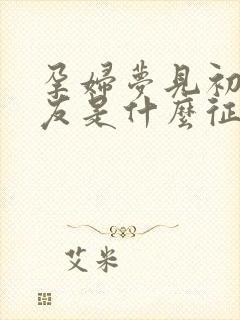 孕婦夢見初
友是什麼征
艾米